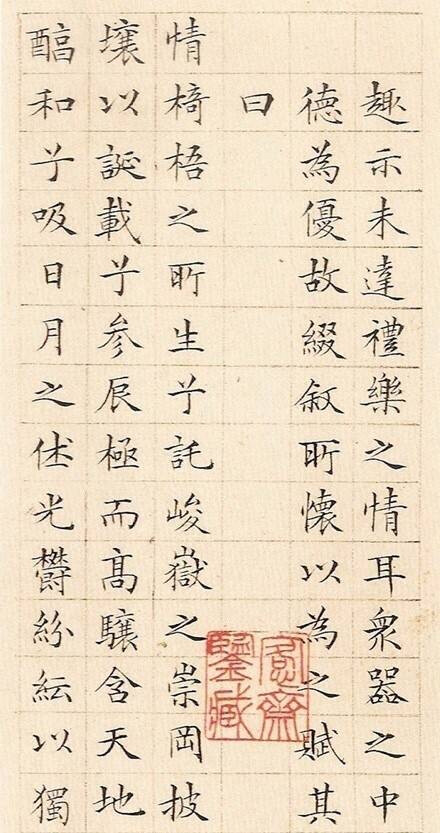 趣示未達禮樂之情耳衆器之中
德為優故綴叙所懷以為之賦其
曰
情椅梧之所生兮託峻嶽之崇岡披
壤以誕載兮参辰極而高驤含天地
醕和兮吸日月之休光鬱紛紜以獨
齋
鑒藏